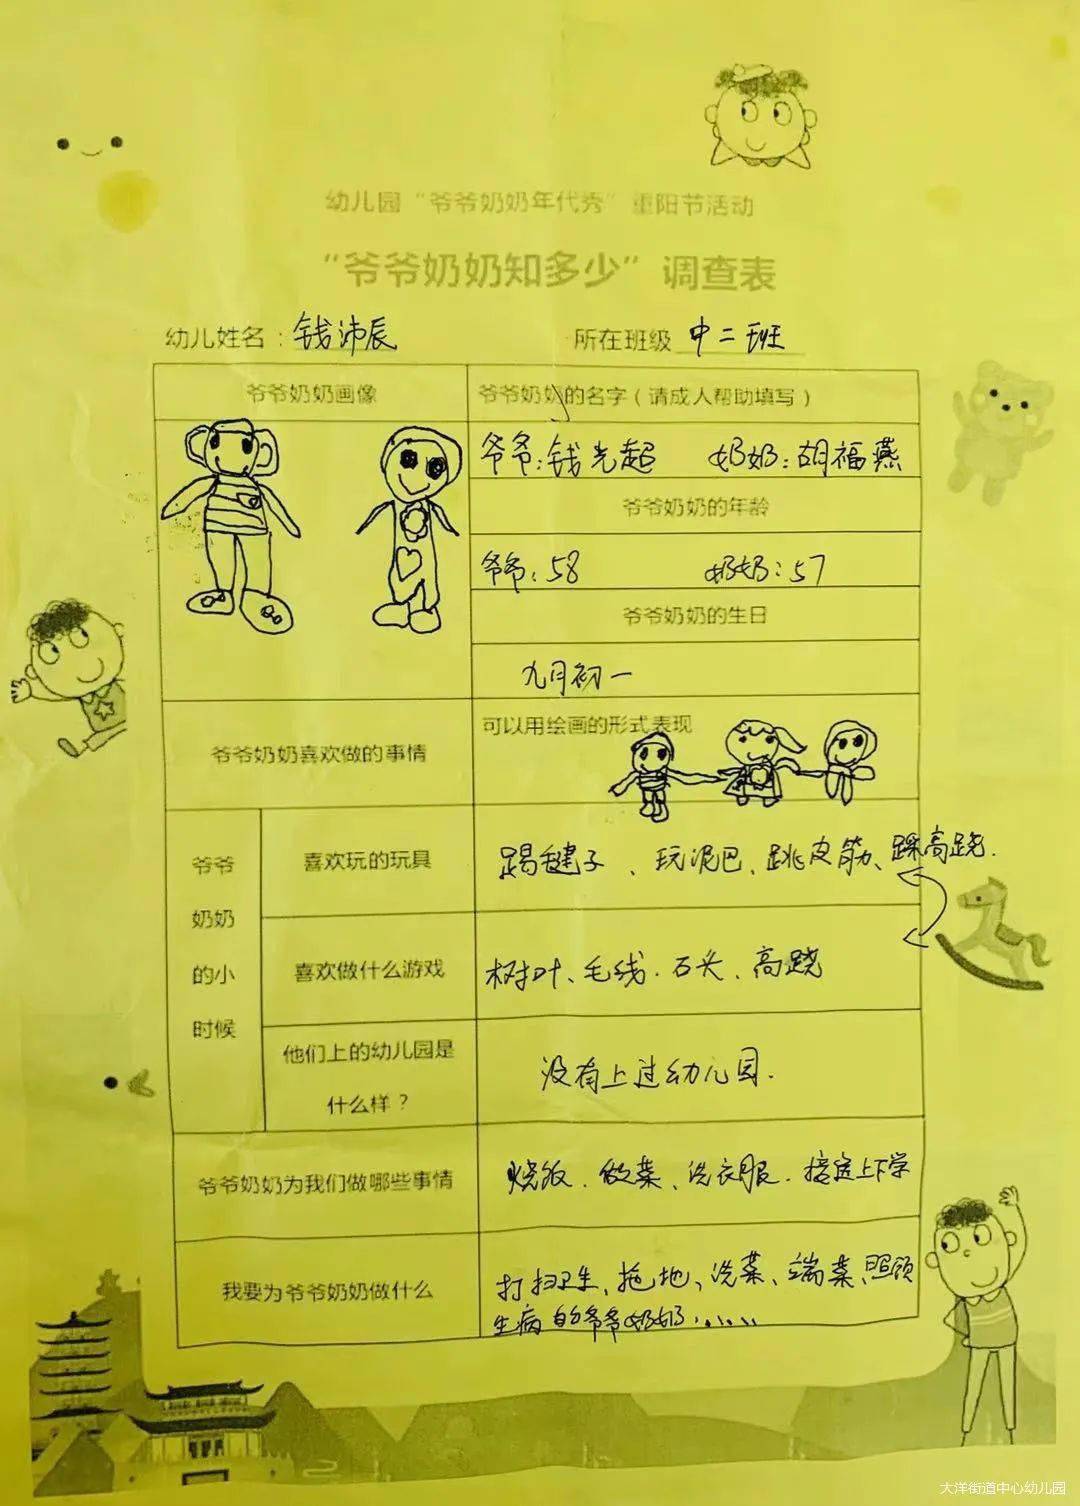 幼儿园“爷爷奶奶年代秀”重阳节活动
“爷爷奶奶知多少”调查表
幼儿姓名：钱沛辰 所在班级 中二班
爷爷奶奶画像 爷爷奶奶的名字（请成人帮助填写）
爷爷：钱光起 奶奶：胡福燕
爷爷奶奶的年龄
爷爷：58 奶奶：57
爷爷奶奶的生日
九月初一
爷爷奶奶喜欢做的事情 可以用绘画的形式表现
爷爷奶奶的小时候
喜欢玩的玩具 踢毽子、玩泥巴、跳皮筋、踩高跷.
喜欢做什么游戏 树叶、毛线.石头、高跷
他们上的幼儿园是
什么样？
没有上过幼儿园.
爷爷奶奶为我们做哪些事情 烧饭.做菜、洗衣服.接送上下学
我要为爷爷奶奶做什么 打扫卫生、拖地、洗菜、端菜、照顾
生病的爷爷奶奶......
大洋街道中心幼儿园